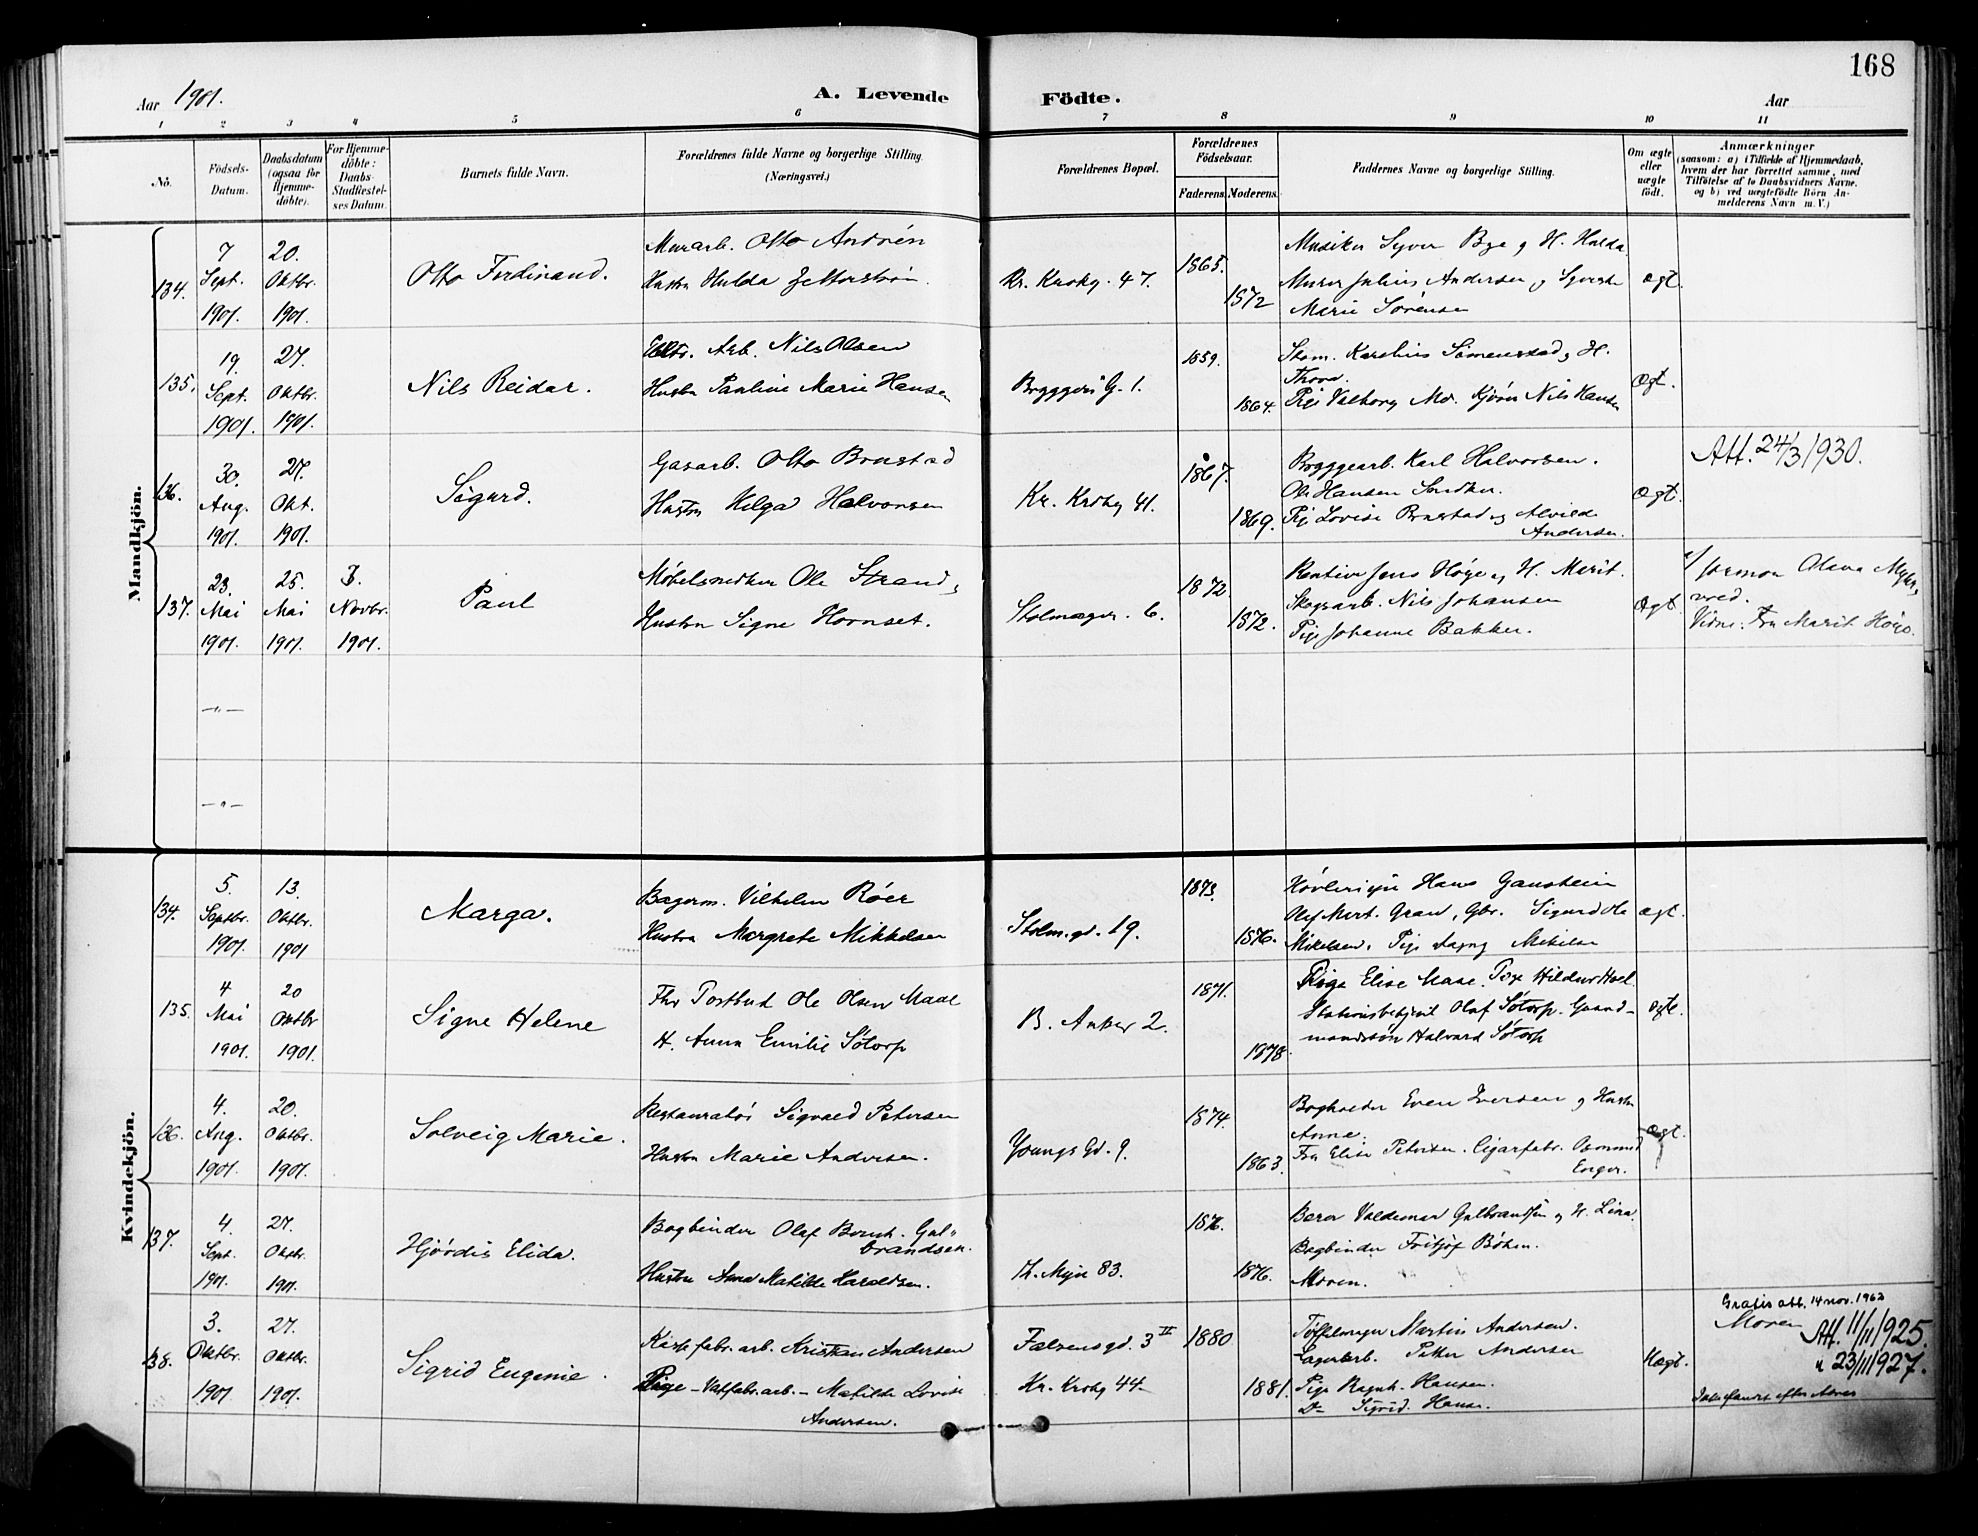 168
Aar 1901.
A. Levende Födte.
Aar
1 2 3 4 5 6 7 8 9 10 11
No.
Födsels-
Datum.
Daabsdatum
(ogsaa for
Hjemme-
döbte).
For Hjemme-
döbte:
Daabs-
Stadfæstel-
ses Datum.
Barnets fulde Navn.
Forældrenes fulde Navne og borgerlige Stilling
(Næringsvei.)
Forældrenes Bopæl.
Forældrenes
Födselsaar.
Faderens. Moderens.
Faddernes Navne og borgerlige Stilling.
Om ægte
eller
uægte
födt.
Anmærkninger
(saasom: a) i Tilfælde af Hjemmedaab,
hvem der har forrettet samme, med
Tilföielse af to Daabsvidners Navne.
og b) ved uægtefödte Börn An-
melderens Navn m. V.)
Mandkjön.
134.
7
Sept.
1901.
20.
Oktbr.
1901.
Otto Ferdinand.
Murarb. Otto Andrén
Hustru Hulda Zetterström
Kr. Krohg. 47.
1865.
1872
Musiker Syver Bye og H. Hulda
Murer Julius Andersen og
Marie Sørensen
Ægt.
135.
19.
Sept.
1901.
27.
Oktbr.
1901.
Nils Reidar.
Arb. Nils Olsen
Hustru Pauline Marie Hansen
Bryggeri G. 1.
1859.
1864.
Skom. Karelius Simenstad og H.
Thora.
Pige Valborg Nils Hansen
Ægt.
136.
30.
Aug.
1901.
27.
Okt.
1901.
Sigurd.
Gasarb. Otto Brustad
Hustru Helga Halvorsen
Kr. Krohg 41.
1867.
1869.
Bryggearb. Karl Halvorsen.
Ole Hansen
Pige Lovise Brustad og Alvilde
Andersen.
Ægt.
Att. 24/3 1930.
137.
23.
Mai
1901.
25.
Mai
1901.
3.
Novbr.
1901.
Paul
Møbelsnedker Ole Strand,
Hustru Signe Hornset.
Stolmager. 6.
1872.
1872.
Rentier Jens Höye og H. Marit.
Skogsarb. Nils Johansen
Pige Johanne Bakker.
Ægt.
v/ Jormor Olava
Vidne: Fru Marit Höye.
—„—
—„—
Kvindekjön.
134.
5.
Septbr.
1901.
13.
Oktbr.
1901
Marga.
Bagerm. Vilhelm Röer
Hustru Margrete Mikkelsen
Stolm.gd. 19.
1873.
1876.
Hans Ganstein
Gran, Gbr. Sigurd Ole
Mikelsen, Pige
ægt.
135.
4
Mai
1901.
20
Oktbr
1901.
Signe Helene
Fhv Postbud Ole Olsen Maae
H. Anna Emilie Sötorp
B. Anker 2.
1871.
1878.
Pige Elise Maae. Pige Hildur
Stationsbetjent Olaf Sötorp. Gaard-
mandssön Halvard Sötorp
Ægte.
136.
4.
Aug.
1901.
20.
Oktbr.
1901.
Solveig Marie.
Restauratör Sigvald Petersen
Hustru Marie Andersen.
Youngs Gd. 9.
1874.
1863.
Bogholder Even Iversen og Hustru
Anne.
Fru Elise Petersen. Cigarfabr. Osmund
Enger.
Ægt.
137.
4.
Sept.
1901.
27.
Oktbr.
1901.
Hjördis Elida.
Bogbinder Olaf Bernh. Gul-
brandsen.
Hustru Anna Matilde Haraldsen.
Th. Meyer 83.
1876.
1876.
Valdemar Gulbrandsen og H. Lina.
Bogbinder Fritjof
Moren.
138.
3.
Oktbr.
1901
27.
Oktbr.
1901.
Sigrid Eugenie.
Kristian Andersen
Pige - arb. - Matilde Lovise
Andersen.
Falsensgd. 3 II
Kr. Krohg 44.
1880
1881.
Martin Andersen.
Lagerarb. Petter Andersen
Pige Ragnh. Hansen.
D= Sigrid. Hansen.
Uægt.
Gratis att. 14 nov. 1962
Moren
Att. 11/11 1925.
" 23/11 1927.